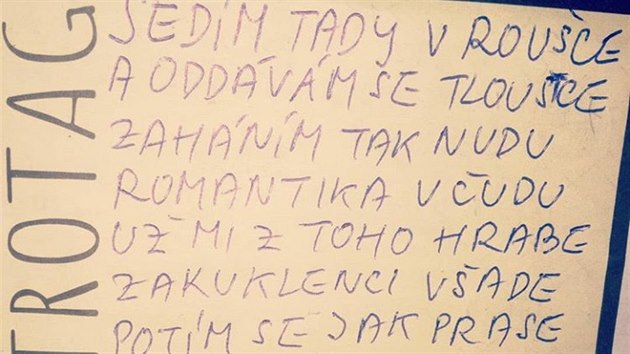 SEDÍM TADY V ROUŠCE
A ODDÁVÁM SE TLOUŠTCE
ZAHÁNÍM TAK NUDU
ROMANTIKA V ČUDU
UŽ MI Z TOHO HRABE
ZAKUKLENCI VŠADE
POTÍM SE JAK PRASE
TROTAG